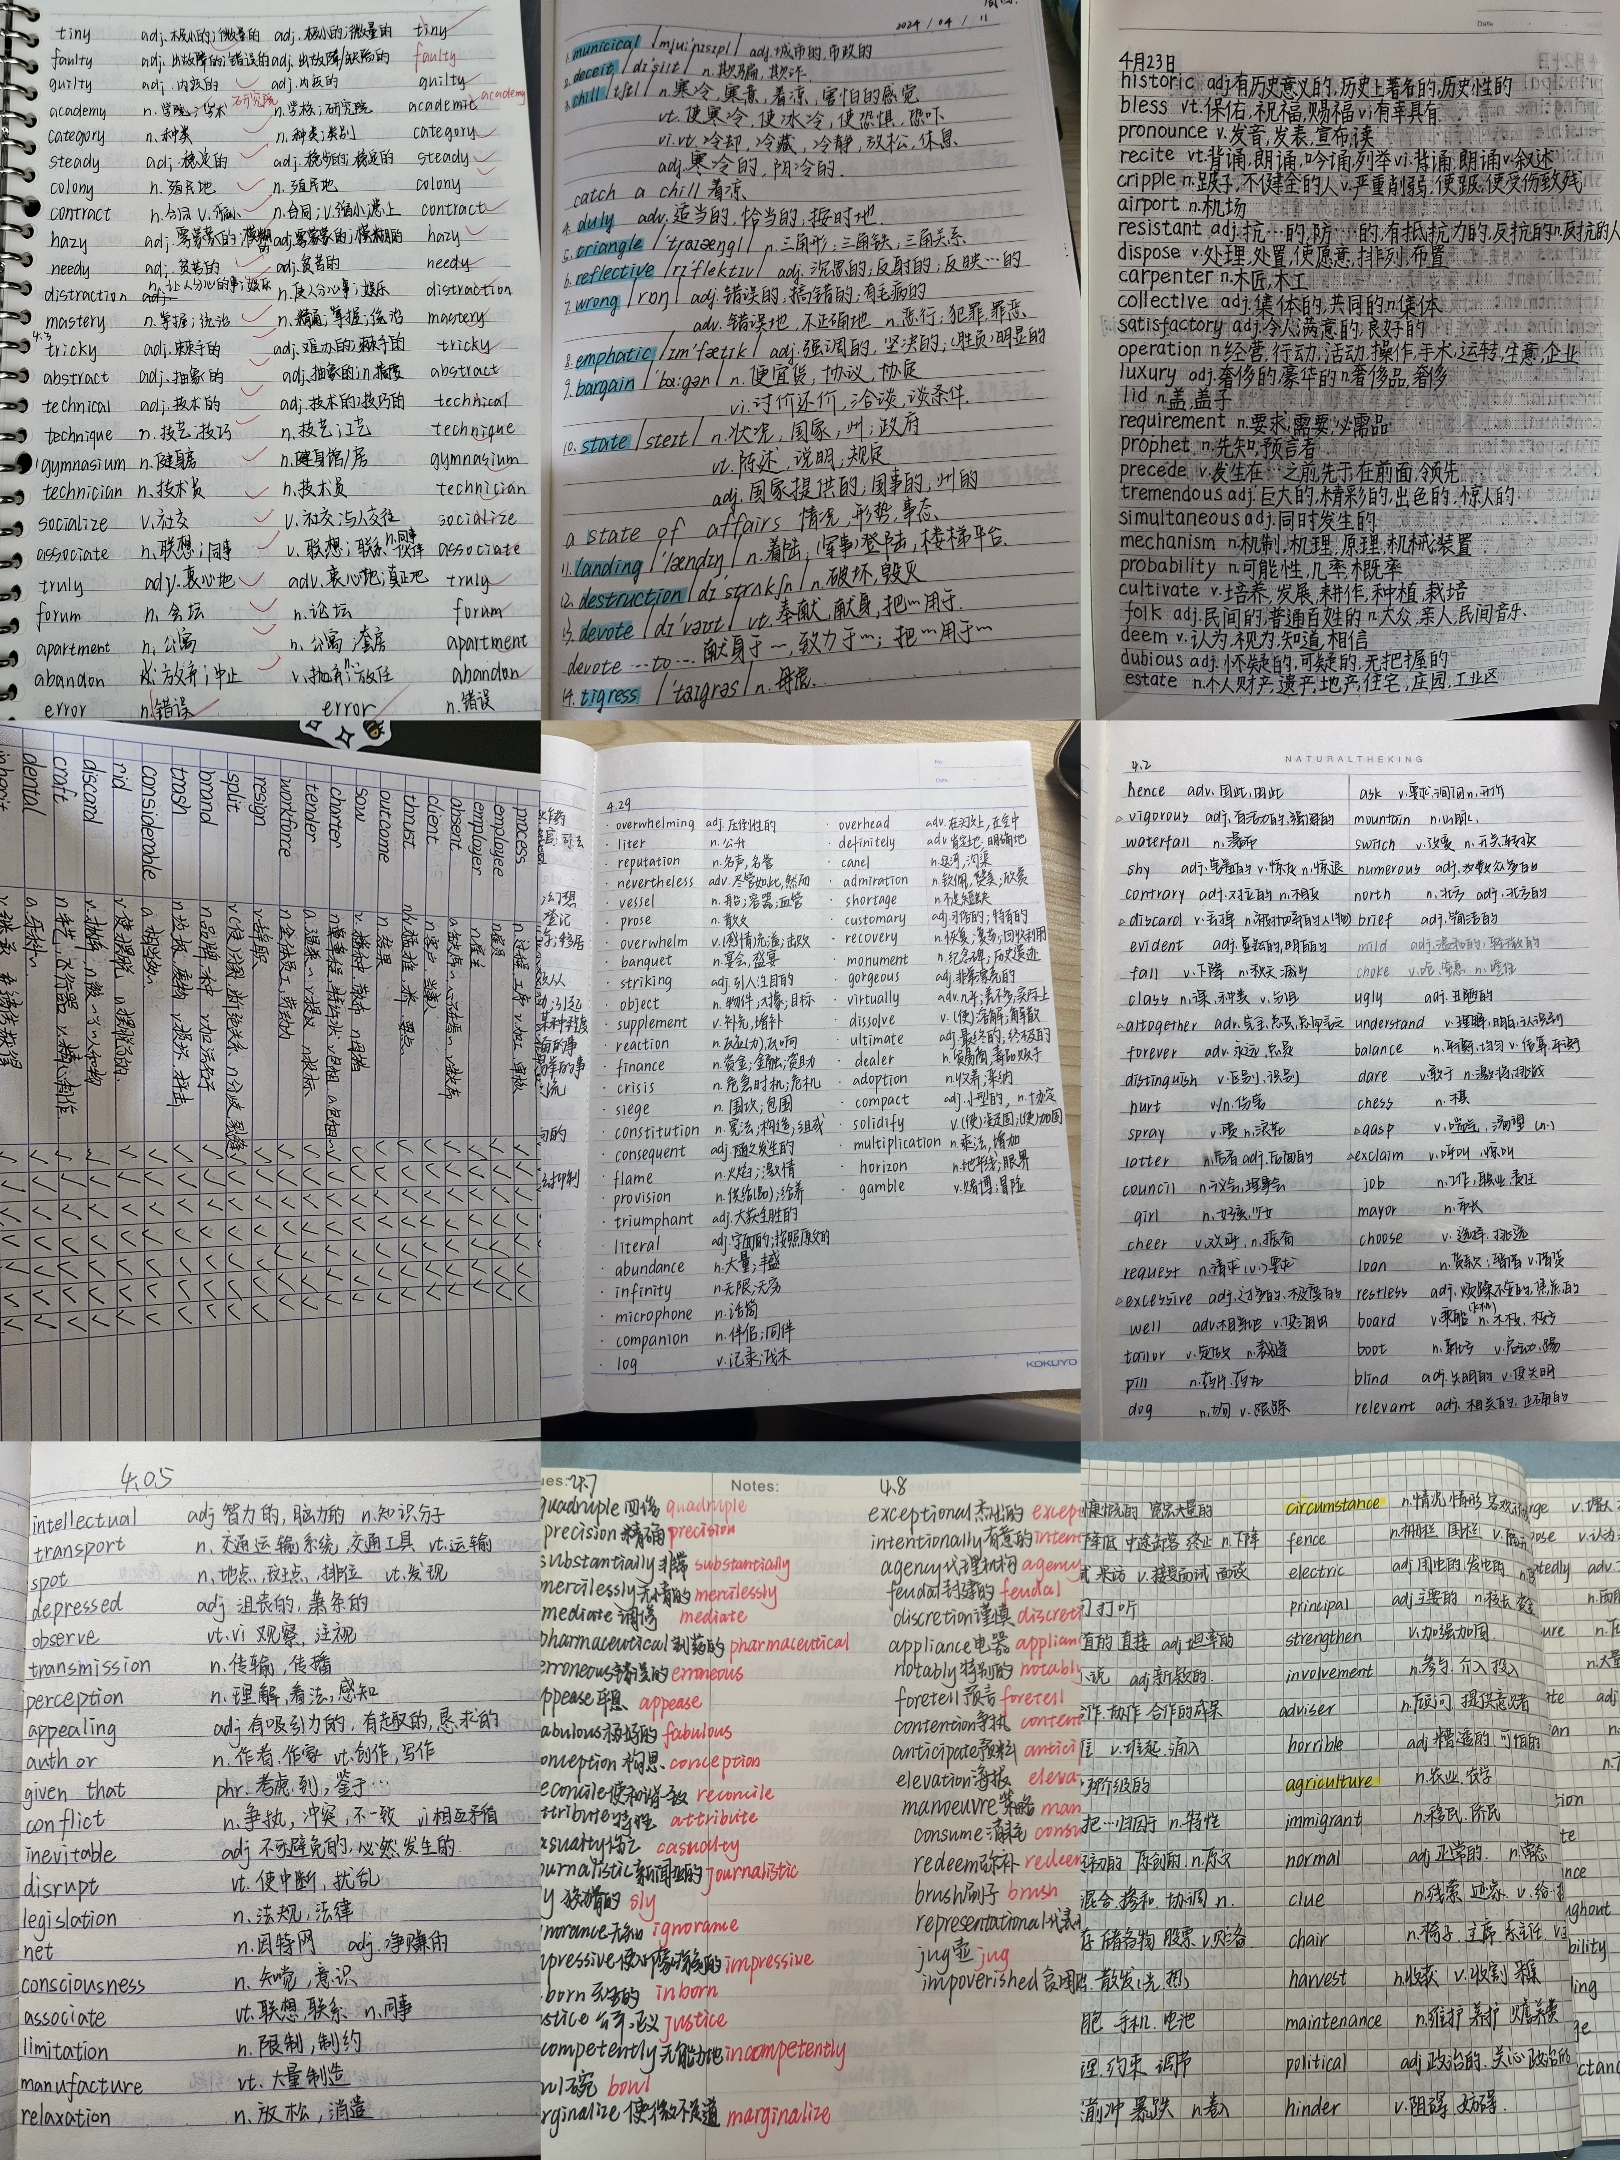 tiny adj.极小的;微量的 adj.极小的;微量的 tiny
faulty adj.出故障的;错误的 adj.出故障/缺陷的 faulty
guilty adj.内疚的 adj.内疚的 guilty
academy n.学院;学术 研究院 n.学校;研究院 academit academy
category n.种类 n.种类;类别 category
steady adj.稳定的 adj.稳步的;稳定的 steady
colony n.殖民地 n.殖民地 colony
contract n.合同 v.缩小 n.合同;v.缩小;患上 contract
hazy adj.雾蒙蒙的;模糊的 adj.雾蒙蒙的;模糊的 hazy
needy adj.贫苦的 adj.贫苦的 needy
distraction n.让人分心的事;娱乐 n.使人分心事;娱乐 distraction
mastery n.掌握;统治 n.精通;掌握;统治 mastery
4.3
tricky adj.棘手的 adj.难办的;棘手的 tricky
abstract adj.抽象的 adj.抽象的;n.摘要 abstract
technical adj.技术的 adj.技术的;技巧的 technical
technique n.技艺;技巧 n.技艺;工艺 technique
gymnasium n.健身房 n.健身馆/房 gymnasium
technician n.技术员 n.技术员 technician
socialize v.社交 v.社交;与人交往 socialize
associate n.联想;同事 v.联想;联系 n.同事 伙伴 associate
truly adv.衷心地 adv.衷心地;真正地 truly
forum n.会坛 n.论坛 forum
apartment n.公寓 n.公寓 套房 apartment
abandon v.放弃;中止 v.抛弃 n.放任 abandon
error n.错误 error n.错误
2024/04/11
1.municical /mjuːˈnɪsɪpl/ adj.城市的,市政的
2.deceit /dɪˈsiːt/ n.欺骗,欺诈.
3.chill /tʃɪl/ n.寒冷,寒意,着凉,害怕的感觉
vt.使寒冷,使冰冷,使恐惧,恐吓
vi.vt.冷却,冷藏,冷静,放松,休息
adj.寒冷的,阴冷的.
catch a chill 着凉
4.duly adv.适当的,恰当的,按时地.
5.triangle /ˈtraɪæŋgl/ n.三角形;三角铁;三角关系.
6.reflective /rɪˈflektɪv/ adj.沉思的;反射的;反映…的
7.wrong /rɒŋ/ adj.错误的,搞错的;有毛病的
adv.错误地,不正确地 n.恶行,犯罪,罪恶.
8.emphatic /ɪmˈfætɪk/ adj.强调的,坚决的;(胜负)明显的
9.bargain /ˈbɑːgən/ n.便宜货,协议,协定
vi.讨价还价,洽谈,谈条件.
10.state /steɪt/ n.状况,国家,州;政府
vt.陈述,说明,规定
adj.国家提供的,国事的,州的
a state of affairs 情况,形势,事态.
11.landing /ˈlændɪŋ/ n.着陆,(军事)登陆,楼梯平台.
12.destruction /dɪˈstrʌkʃn/ n.破坏,毁灭
13.devote /dɪˈvəʊt/ vt.奉献,献身,把…用于.
devote …to… 献身于…,致力于…;把…用于…
14.tigress /ˈtaɪgrəs/ n.母虎.
Date
4月23日
historic adj.有历史意义的,历史上著名的,历史性的
bless vt.保佑,祝福,赐福 vi有幸具有
pronounce v.发音,发表,宣布,读
recite vt.背诵,朗诵,吟诵,列举vi.背诵,朗诵v.叙述
cripple n.跛子,不健全的人v.严重削弱,使跛,使受伤致残
airport n.机场
resistant adj.抗…的,防…的,有抵抗力的,反抗的n.反抗的人
dispose v.处理,处置,使愿意,排列,布置
carpenter n.木匠,木工
collective adj.集体的,共同的n.集体
satisfactory adj.令人满意的,良好的
operation n.经营,行动,活动,操作,手术,运转,生意,企业
luxury adj.奢侈的,豪华的n.奢侈品,奢侈
lid n.盖,盖子
requirement n.要求,需要,必需品
prophet n.先知,预言者
precede v.发生在…之前,先于,在前面,领先
tremendous adj.巨大的,精彩的,出色的,惊人的
simultaneous adj.同时发生的
mechanism n.机制,机理,原理,机械装置
probability n.可能性,几率,概率
cultivate v.培养,发展,耕作,种植,栽培
folk adj.民间的,普通百姓的n.大众,亲人,民间音乐
deem v.认为,视为,知道,相信
dubious adj.怀疑的,可疑的,无把握的
estate n.个人财产,遗产,地产,住宅,庄园,工业区
process n.过程,工序 v.加工,审核
employee n.雇员
employer n.雇主
absent
client n.客户
thrust
outcome n.结果
sow v.播种 散布 n.母猪
charter
tender
workforce
resign v.辞职
split
brand n.品牌,一种 v.加污名于
trash
considerable a.相当大的
rid v.使摆脱
discard
craft
dental a.牙科的
inherit
4.29
· overwhelming adj.压倒性的 · overhead adv.在头上,在空中
· liter n.公升 · definitely adv.肯定地;明确地
· reputation n.名声,名誉 · canel n.运河,沟渠
· nevertheless adv.尽管如此,然而 · admiration n.钦佩,赞美;欣赏
· vessel n.船;容器;血管 · shortage n.不足;短缺
· prose n.散文 · customary adj.习俗的;特有的
· overwhelm v.(感情)充溢;击败 · recovery n.恢复;复苏;回收利用
· banquet n.宴会,盛宴 · monument n.纪念碑;历史遗迹
· striking adj.引人注目的 · gorgeous adj.非常漂亮的
· object n.物件;对象;目标 · virtually adv.几乎;差不多,实际上
· supplement v.补充,增补 · dissolve v.(使)溶解;解散
· reaction n.反应(力),反响 · ultimate adj.最终的;终极的
· finance n.资金;金融;资助 · dealer n.贸易商;毒品贩子
· crisis n.危急时机;危机 · adoption n.收养;采纳
· siege n.围攻;包围 · compact adj.小型的, n.协定
· constitution n.宪法;构造;组成 · solidify v.(使)凝固;(使)加固
· consequent adj.随之发生的 · multiplication n.乘法,增加
· flame n.火焰;激情 · horizon n.地平线;眼界
· provision n.供给(品);给养 · gamble v.赌博;冒险
· triumphant adj.大获全胜的
· literal adj.字面的;按照原文的
· abundance n.大量;丰盛
· infinity n.无限;无穷
· microphone n.话筒
· companion n.伴侣;同伴
· log v.记录;伐木
KOKUYO
NATURALTHEKING
4.2
hence adv.因此,由此 ask v.要求,询问 n.开价
vigorous adj.有活力的,强有力的 mountain n.山脉
waterfall n.瀑布 switch v.改变 n.开关,转换
shy adj.害羞的 v.惊吓 n.惊退 numerous adj.为数众多的
contrary adj.对立的 n.相反 north n.北方 adj.北方的
discard v.丢掉 n.被抛弃的人(物) brief adj.简洁的
evident adj.显然的,明显的 mild adj.温和的,轻微的
fall v.下降 n.秋天,减少 choke
class n.课,种类 v.归类 ugly adj.丑陋的
altogether adv.完全,总共,总而言之 understand v.理解,明白,认识到
forever adv.永远,总是 balance n.平衡,均匀
distinguish v.区别,识别 dare v.敢于 n.激将,挑战
hurt v/n.伤害 chess n.棋
spray v.喷 n.浪花 gasp v.喘气,渴望 (n.)
latter n.后者 adj.后面的 exclaim v.呼叫,惊叫
council n.议会,理事会 job n.工作,职业,责任
girl n.女孩,少女 mayor n.市长
cheer v.欢呼,n.振奋 choose v.选择,挑选
request n.请求 (v.)要求 loan n.贷款;暂借 v.借贷
excessive adj.过多的,极度的 restless adj.烦躁不安的,焦虑的
well adv.相当地 v.使涌出 board
tailor v.定做 n.裁缝 boot n.靴子 v.启动,踢
pill n.药片,药丸 blind adj.失明的 v.使失明
dog n.狗 v.跟踪 relevant adj.相关的,正确的
4.05
intellectual adj 智力的,脑力的 n.知识分子
transport n.交通运输系统,交通工具 vt.运输
spot n.地点,斑点,排位 vt.发现
depressed adj 沮丧的,萧条的
observe vt.vi 观察,注视
transmission n.传输,传播
perception n.理解,看法,感知
appealing adj 有吸引力的,有趣的,恳求的
author n.作者,作家 vt.创作,写作
given that phr.考虑到,鉴于…
conflict n.争执,冲突,不一致 vi相互矛盾
inevitable adj 不可避免的,必然发生的
disrupt vt.使中断,扰乱
legislation n.法规,法律
net n.因特网 adj.净赚的
consciousness n.知觉,意识
associate vt.联想,联系 n.同事
limitation n.限制,制约
manufacture vt.大量制造
relaxation n.放松,消遣
ues:4.7 Notes: 4.8
quadruple 四倍 quadruple
precision 精确 precision
substantially 非常 substantially
mercilessly 无情的 mercilessly
mediate 调停 mediate
pharmaceutical 制药的 pharmaceutical
erroneous 错误的 erroneous
ppease 平息 appease
abulous 极好的 fabulous
onception 构思 conception
econcile 使和谐一致 reconcile
ttribute 特性 attribute
asualty 伤亡 casualty
ournalistic 新闻业的 journalistic
y 狡猾的 sly
norance 无知 ignorame
mpressive 使人印象深刻的 impressive
born 天生的 inborn
stice 公平,正义 justice
competently 无能力地 incompetently
wl 碗 bowl
rginalize 使微不足道 marginalize
exceptional 杰出的 excep
intentionally 有意的 inten
agency 代理机构 agency
feudal 封建的 feudal
discretion 谨慎 discreti
appliance 电器 applian
notably 特别的 notably
foretell 预言 foretell
contention 争执 content
anticipate 预料 antici
elevation 海拔 eleva
manoeuvre 策略 man
consume 消耗 consu
redeem 弥补 redeem
brush 刷子 brush
representational 代表
jug 壶 jug
impoverished 贫困
慷慨的 宽宏大量的
降低 中途卸客 终止 n.下降
采访 v.接受面试 面谈
打听
直接 adj 坦率的
说 adj 新颖的.
作.协作 合作的成果
v.堆起.涌入
阶级的
把…归因于 n.特性
初的 原创的 n.原文
混合.掺和.协调 n.
存储备物 股票 v.贮备
散发(光.热)
胞 手机.电池
理.约束 调节
俯冲 暴跌 n卷入
circumstance n.情况 情形 客观
fence n.栅栏 围栏
electric adj 用电的.发电的
principal adj 主要的 n.校长 资金
strengthen v.加强加固
involvement n.参与.介入 投入
adviser n.顾问 提供意见者
horrible adj 糟透的 可怕的
agriculture n.农业.农学
immigrant n.移民.侨民
normal adj 正常的. n.常态
clue n.线索 迹象
chair n.椅子.主席 系主任
harvest n.收获 v.收割
maintenance n.维护 养护 赡养费
political adj 政治的.关心政治的
hinder v.阻碍.妨碍.